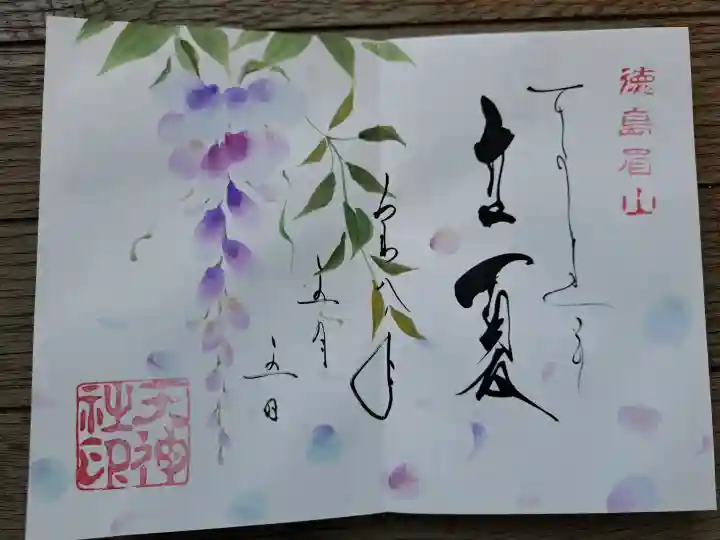 徳島眉山
立夏
令和八年
五月
五日
天神社印